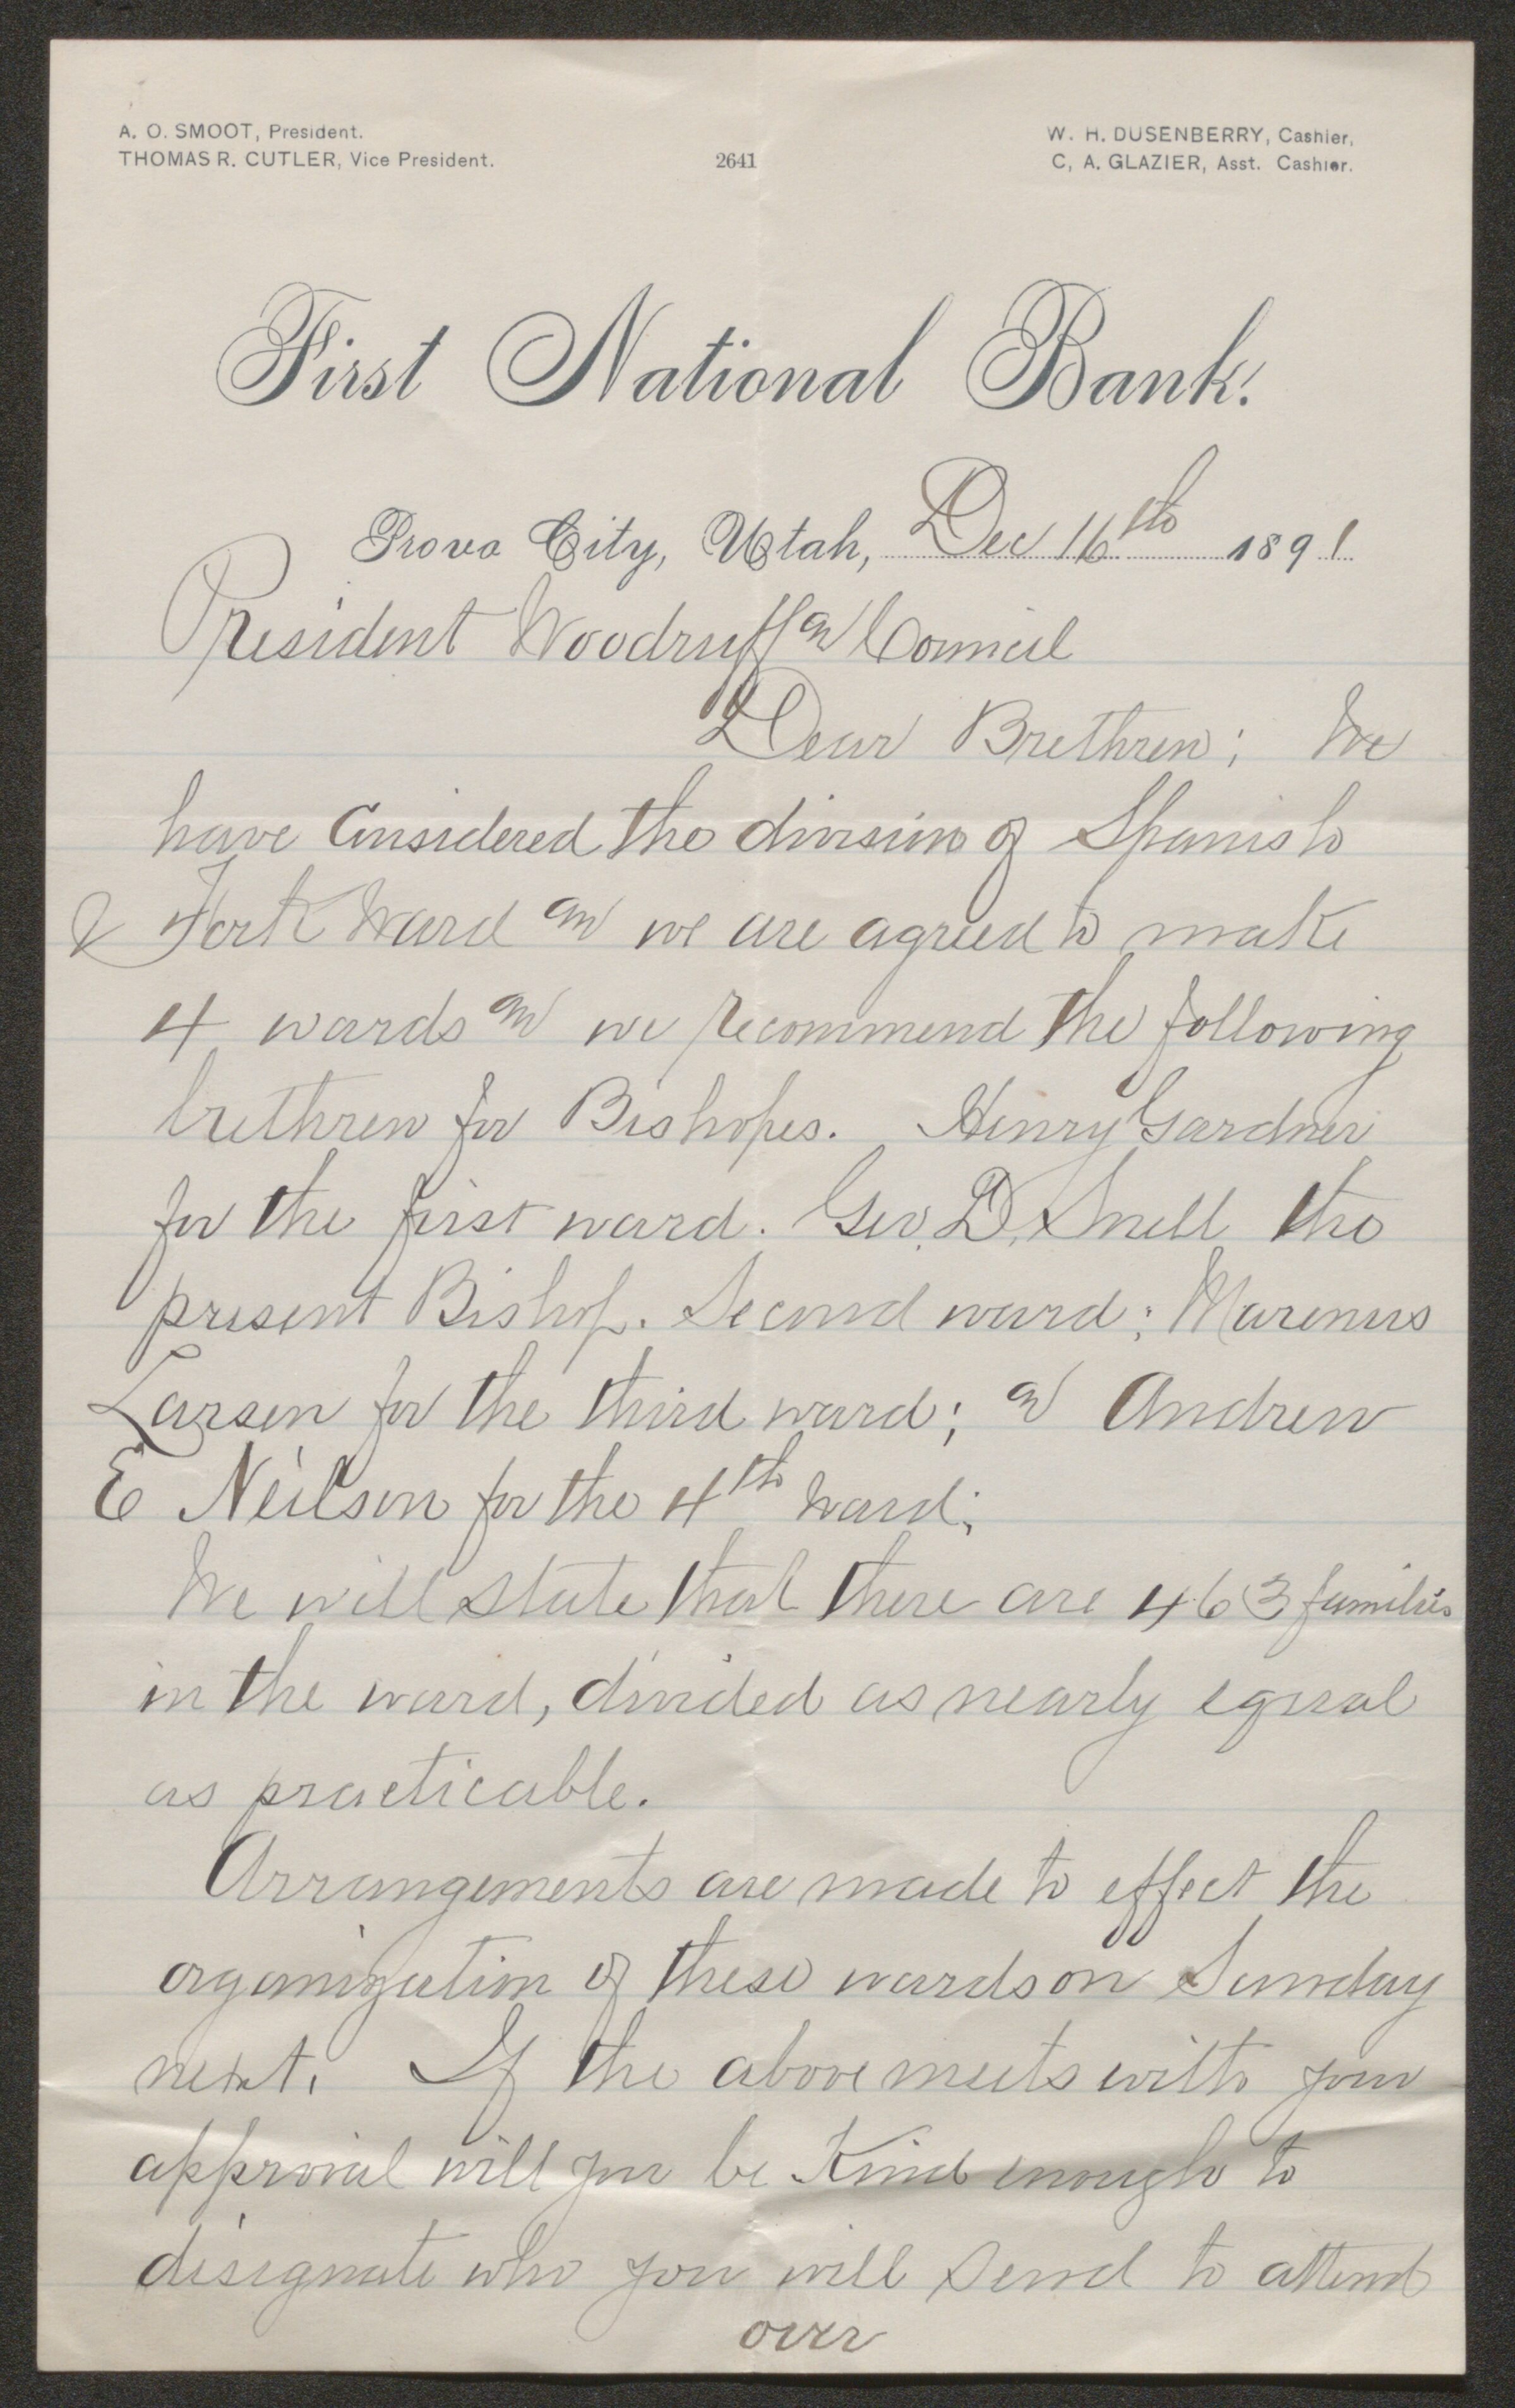 A. O. SMOOT, President.
THOMAS R. CUTLER, Vice President.
2641
W. H. DUSENBERRY, Cashier,
C, A. GLAZIER, Asst. Cashier.
First National Bank.
Provo City, Utah, Dec 16th 1891
President Woodruff and Council
Dear Brethren; We
have Considered the division of Spanish
Fork Ward and we are agreed to make
4 wards and we recommend the following
brethren for Bishopes. Henry Gardner
for the first ward. Geo. D. Snell the
present Bishop. Second ward; Marenus
Larsen for the third ward; and Andrew
E Neilson for the 4th Ward;
We will state that there are 463 families
in the ward, divided as nearly equal
as practicable.
Arrangements are made to effect the
organization of these wards on Sunday
next. If the above meets with your
approval will you be Kind enough to
designate who you will Send to attend
over